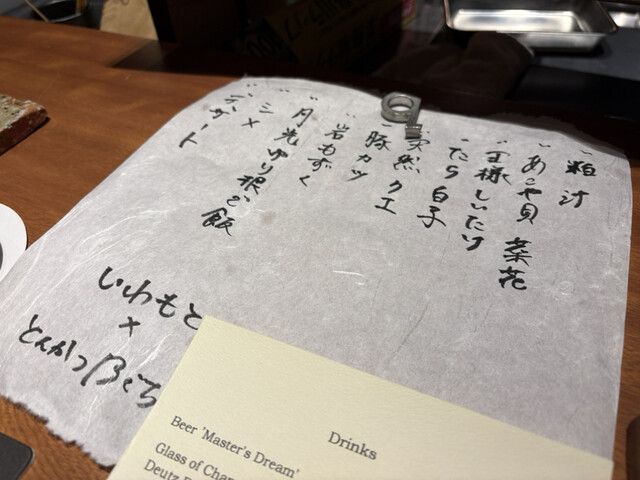 粕汁
あこや貝 菜花
王様しいたけ
たら白子
天然クエ
豚カツ
岩もずく
月光ゆり根ご飯
シメ
デザート
いわもと
×
とんかつ
Drinks
Beer 'Master's Dream'
Glass of Char
Deutz